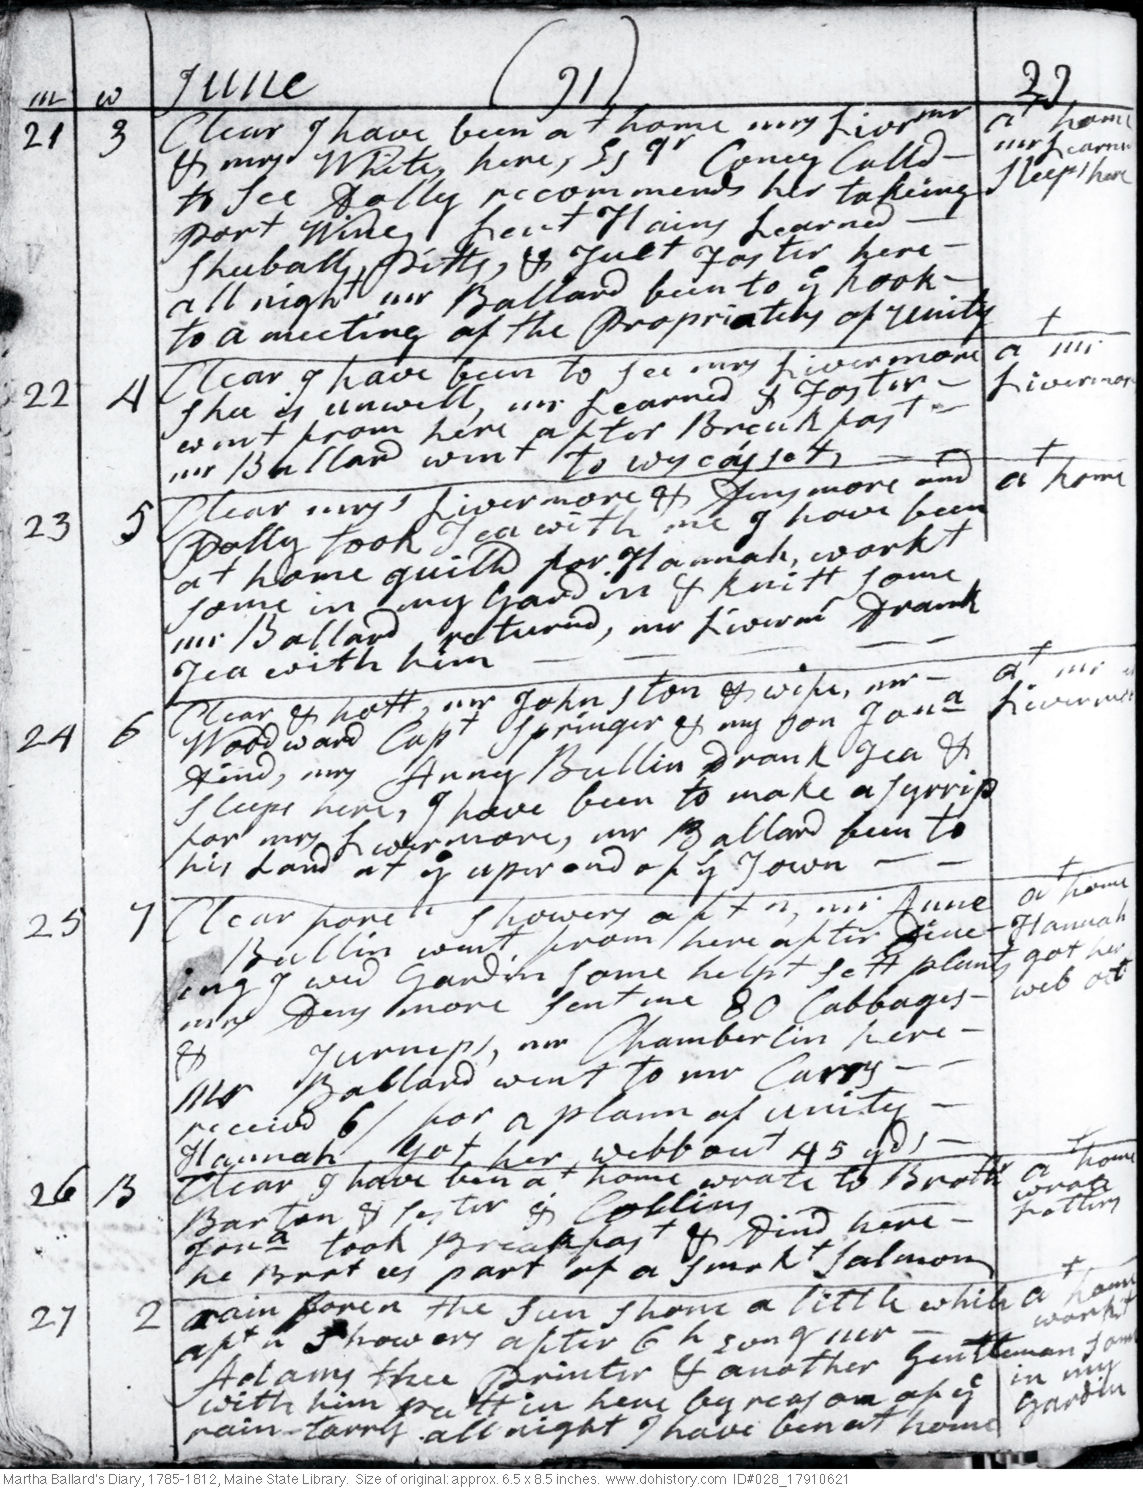 June (91) 27
m w
21 3 Clear I have been at home mrs Livermr at home
& mrs White, here, Esqr Coney Calld mr Learned
to See Dolly recommends her takeing Sleeps here
Port Wine, Leut Hains Learned
Shuball, Pitts, & Just Foster here
all night mr Ballard been to ye hook
to a meeting of the Propriaters of Unity
22 4 Clear I have been to See mrs Livermore at mr
Shee is unwell, mr Learned & Foster Livermore
went from here after Breakfast
mr Ballard went to wycasset,
23 5 Clear mrs Livermore & Densmore and at home
Dolly took Tea with me I have been
at home quilld for Hannah, workt
some in my Gardin & knitt some
mr Ballard returnd, mr Liverm Drank
Tea with him
24 6 Clear & hott, mr Johnston & wife, mr at mr
Woodward Capt Springer & my son Jona Livermore
dind, mrs Anny Bullin Drank Tea &
Sleeps here, I have been to make a Syrrip
for mrs Livermore, mr Ballard been to
his Land at ye uper end of ye Town
25 7 Clear foren Showers aftn, mr Anne at home
Bullin went from here after Dine- Hannah
ing I wed Gardin some helpt sett plants got her
mrs Densmore sent me 80 Cabbages web out
& Turneps, mr Chamberlin here
Mr Ballard went to mr Carrs
receivd 6/ for a plann of unity
Hannah got her webb out 45 yds
26 B Clear I have ben at home wrote to Brothr at home
Barton & Sister & Collins wrote
Jona took Breakfast & Dind here Letters
he Brot us part of a Smokt Salmon
27 2 rain foren the Sun Shone a little while at home
aftn Showers after 6 h Eveng mr workt
Adams thee Printer & another Gentleman some
with him putt in here by reason of ye in my
rain tarry all night I have ben at home Gardin
Martha Ballard's Diary, 1785-1812, Maine State Library. Size of original: approx. 6.5 x 8.5 inches. www.dohistory.com ID#028_17910621